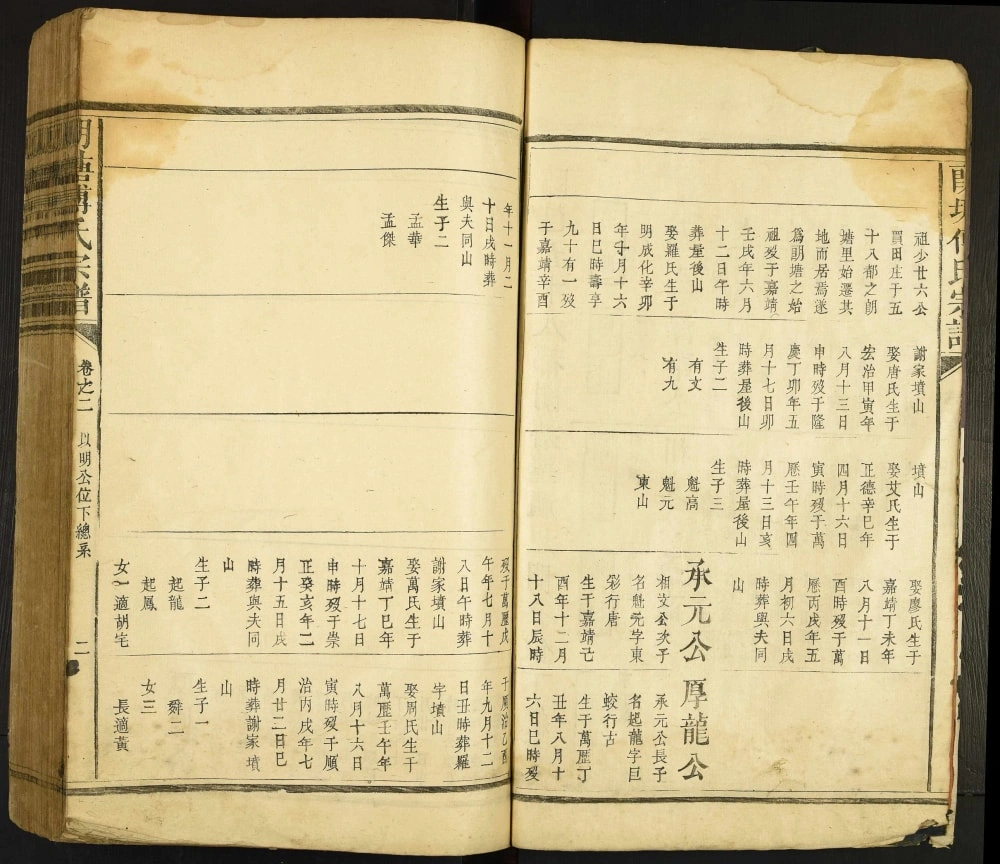 祖少廿六公
買田庄于五
十八都之朗
塘里始遷其
地而居焉遂
爲朗塘之始
祖歿于嘉靖
壬戌年六月
十二日午時
葬屋後山
娶羅氏生于
明成化辛卯
年十月十六
日巳時壽享
九十有一歿
于嘉靖辛酉
謝家墳山
娶唐氏生于
宏治甲寅年
八月十三日
申時歿于隆
慶丁卯年五
月十七日卯
時葬屋後山
生子二
有文
有九
墳山
娶艾氏生于
正德辛巳年
四月十六日
寅時歿于萬
歷壬午年四
月十三日亥
時葬屋後山
生子三
魁高
魁元
東山
娶廖氏生于
嘉靖丁未年
八月十一日
酉時歿于萬
歷丙戌年五
月初六日戌
時葬與夫同
山
承元公
相文公次子
名魁元字東
彩行唐
生于嘉靖己
酉年十二月
十八日辰時
厚龍公
承元公長子
名起龍字巨
蛟行古
生于萬歷丁
丑年八月十
六日巳時歿
年十一月二
十日戌時葬
與夫同山
生子二
孟華
孟傑
歿于萬歷戊
午年七月十
八日午時葬
謝家墳山
娶萬氏生于
嘉靖丁巳年
十月十七日
申時歿于崇
正癸亥年二
月十五日戌
時葬與夫同
山
生子二
起龍
起鳳
女一適胡宅
于順治乙酉
年九月十二
日丑時葬羅
字墳山
娶周氏生于
萬歷壬午年
八月十六日
寅時歿于順
治丙戌年七
月廿二日巳
時葬謝家墳
山
生子一
舜二
女三
長適黃
朗塘傅氏宗譜
卷之二
以明公位下總系
二